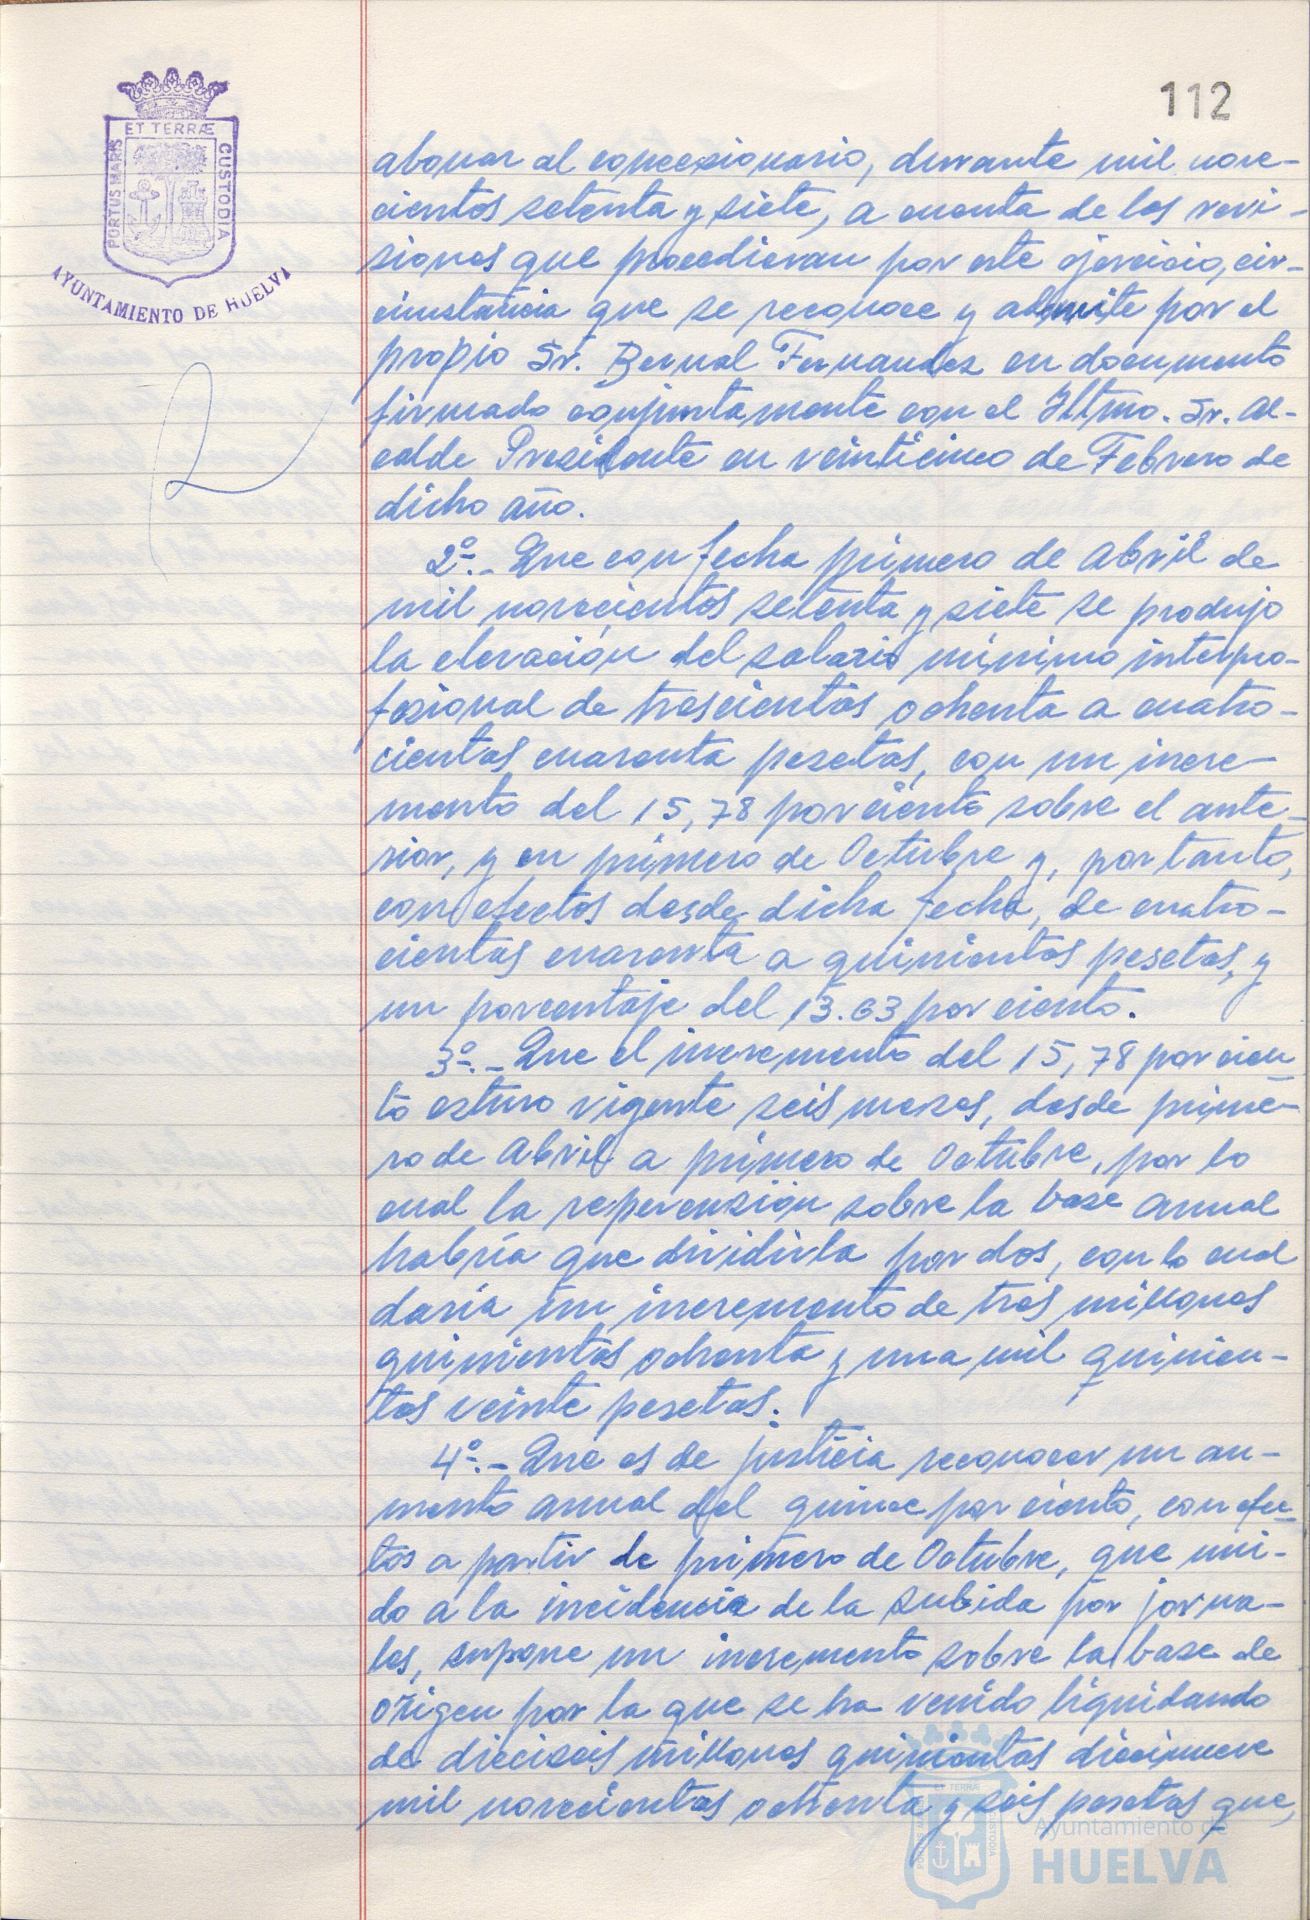 112
ET TERRÆ
PORTUS MARIS
CUSTODIA
AYUNTAMIENTO DE HUELVA
abonar al concesionario, durante mil nove-
cientos setenta y siete, a cuenta de las revi-
siones que procedieran por este ejercicio, cir-
cunstancia que se reconoce y admite por el
propio Sr. Bernal Fernandez en documento
firmado conjuntamente con el Iltmo. Sr. Al-
calde Presidente en veinticinco de Febrero de
dicho año.
2º.- Que con fecha primero de Abril de
mil novecientos setenta y siete se produjo
la elevación del salario mínimo interpro-
fesional de trescientas ochenta a cuatro-
cientas cuarenta pesetas, con un incre-
mento del 15,78 por ciento sobre el ante-
rior, y en primero de Octubre y, por tanto,
con efectos desde dicha fecha, de cuatro-
cientas cuarenta a quinientas pesetas, y
un porcentaje del 13.63 por ciento.
3º.- Que el incremento del 15,78 por cien-
to estuvo vigente seis meses, desde prime-
ro de Abril a primero de Octubre, por lo
cual la repercusión sobre la base anual
habría que dividirla por dos, con lo cual
daría un incremento de tres millones
quinientas ochenta y una mil quinien-
tas veinte pesetas.
4º.- Que es de justicia reconocer un au-
mento anual del quince por ciento, con efec-
tos a partir de primero de Octubre, que uni-
do a la incidencia de la subida por jorna-
les, supone un incremento sobre la base de
origen por la que se ha venido liquidando
de dieciseis millones quinientas diecinueve
mil novecientas ochenta y seis pesetas que,
ET TERRÆ
CUSTODIA
Ayuntamiento de
HUELVA